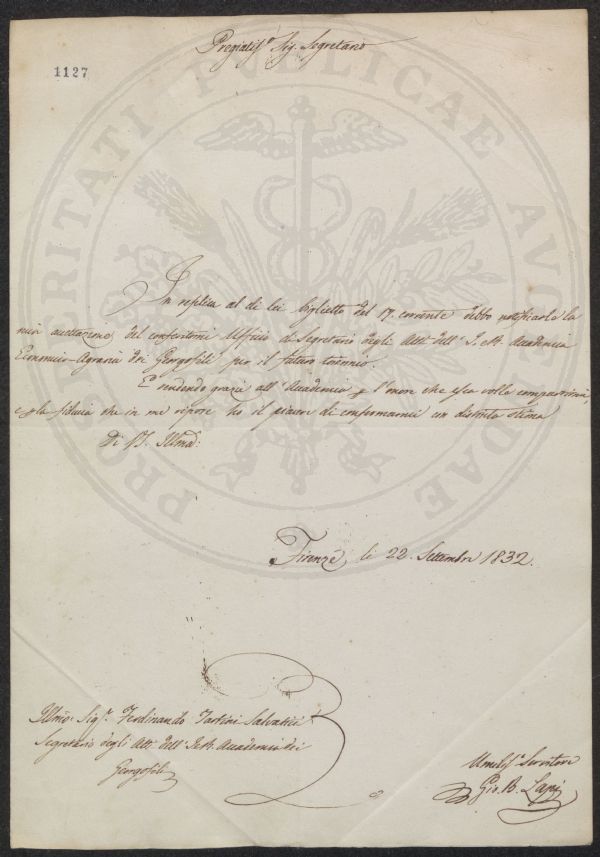 Pregiatis.º Sig. Segretario
1127
PROSPERITATI PVBLICAE AVGENDAE
In replica al di lei biglietto del 17. corrente debbo notificarle la
mia accettazione del conferitomi Uffizio di Segretario degli Atti dell' I. e R. Accademia
Economico-Agraria dei Georgofili per il futuro
E rendendo grazie all' Accademia p l'onore che essa volle compartirmi,
e p la fiducia che in me repose ho il piacere di confermarmi con distinta stima
Di V.S. Illma:
Firenze, li 22. Settembre 1832.
Illmo: Sig.r Ferdinando Tartini Salvatici
Segretario degli Atti dell' I. e R. Accademia dei
Georgofili
Umilis.º Servitore
Gio. B. Lapi